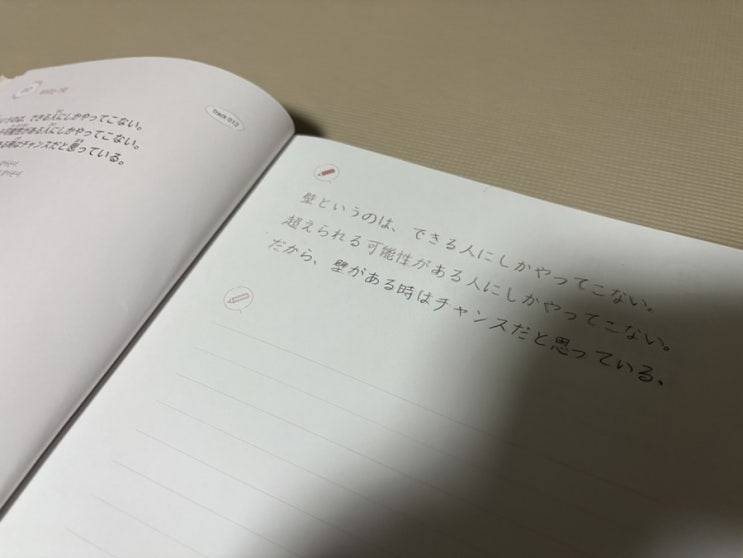 Track 012
できる人にしかやってこない。
可能性がある人にしかやってこない。
チャンスだと思っている。
壁というのは、できる人にしかやってこない。
超えられる可能性がある人にしかやってこない。
だから、壁がある時はチャンスだと思っている、